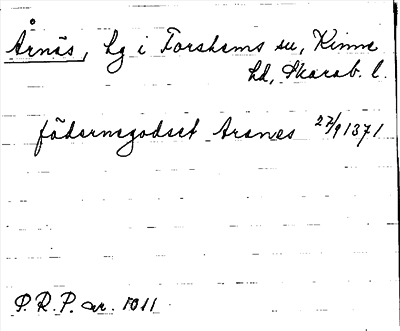 Årnäs, hg i Forshems sn, Kinne
hd, Skarab. l.
fädernegodset Arsnes 27/9 1371
P.R.P. nr. 1011